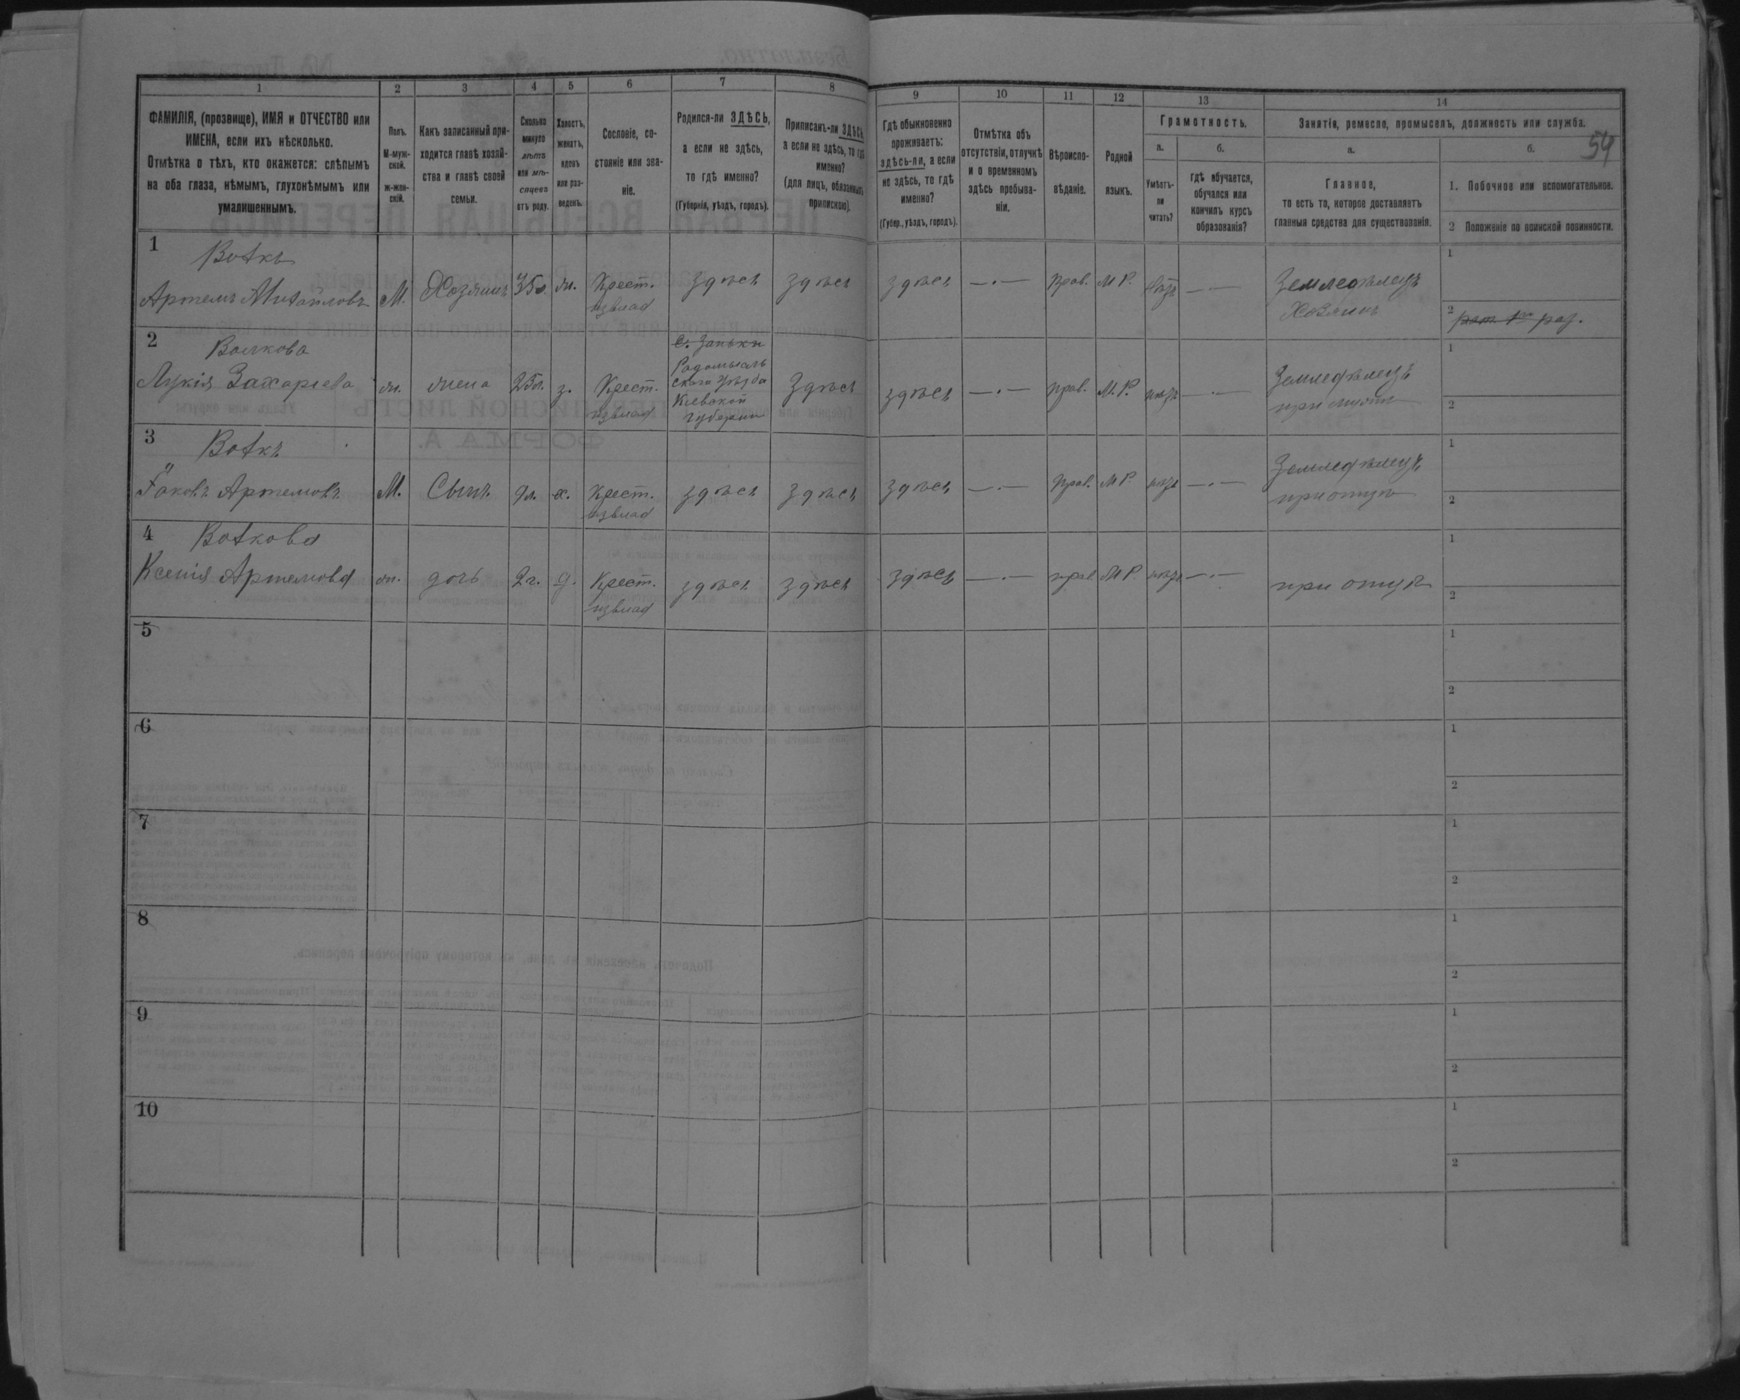 1 2 3 4 5 6 7 8 9 10 11 12 13 14
ФАМИЛІЯ, (прозвище), ИМЯ и ОТЧЕСТВО или
ИМЕНА, если ихъ нѣсколько.
Отмѣтка о тѣхъ, кто окажется: слѣпымъ
на оба глаза, нѣмымъ, глухонѣмымъ или
умалишеннымъ.
Полъ.
М-муж-
ской.
ж-жен-
скій.
Какъ записанный при-
ходится главѣ хозяй-
ства и главѣ своей
семьи.
Сколько
минуло
лѣтъ
или мѣ-
сяцевъ
отъ роду.
Холостъ,
женатъ,
вдовъ
или раз-
веденъ.
Сословіе, со-
стояніе или зва-
ніе.
Родился-ли ЗДѢСЬ,
а если не здѣсь,
то гдѣ именно?
(Губернія, уѣздъ, городъ).
Приписанъ-ли ЗДѢСЬ,
а если не здѣсь, то гдѣ
именно?
(для лицъ, обязанныхъ
припискою).
Гдѣ обыкновенно
проживаетъ:
здѣсь-ли, а если
не здѣсь, то гдѣ
именно?
(Губер., уѣздъ, городъ).
Отмѣтка объ
отсутствіи, отлучкѣ
и о временномъ
здѣсь пребыва-
ніи.
Вѣроиспо-
вѣданіе.
Родной
языкъ.
Грамотность.
а. б.
Умѣетъ-
ли
читать?
гдѣ обучается,
обучался или
кончилъ курсъ
образованія?
Занятіе, ремесло, промыселъ, должность или служба.
а. б. 54
Главное,
то есть то, которое доставляетъ
главныя средства для существованія.
1. Побочное или вспомогательное.
2 Положеніе по воинской повинности.
1 Вовкъ
Артемъ Михайловъ М. Хозяинъ 35 ж. Крест. здѣсь здѣсь здѣсь — . — прав. М Р. — . — Земледѣлецъ 1
извлад Хозяинъ 2 раз.
2 Волкова с. Заньки 1
Лукія Захарьева ж. жена 25 л. з. Крест. Радомысль здѣсь здѣсь — . — прав. М. Р. — . — Земледѣлецъ
извлад ского Уѣзда при мужѣ 2
Кіевской
Губерніи
3 Вовкъ 1
Іаковъ Артемовъ М. Сынъ х. Крест. здѣсь здѣсь здѣсь — . — прав. М Р — . — Земледѣлецъ
извлад при отцѣ 2
4 Вовкова 1
Ксенія Артемова ж. дочь 2 г. д. Крест. здѣсь здѣсь здѣсь — . — прав М Р — . — при отцѣ
извлад 2
5 1
2
6 1
2
7 1
2
8 1
2
9 1
2
10 1
2